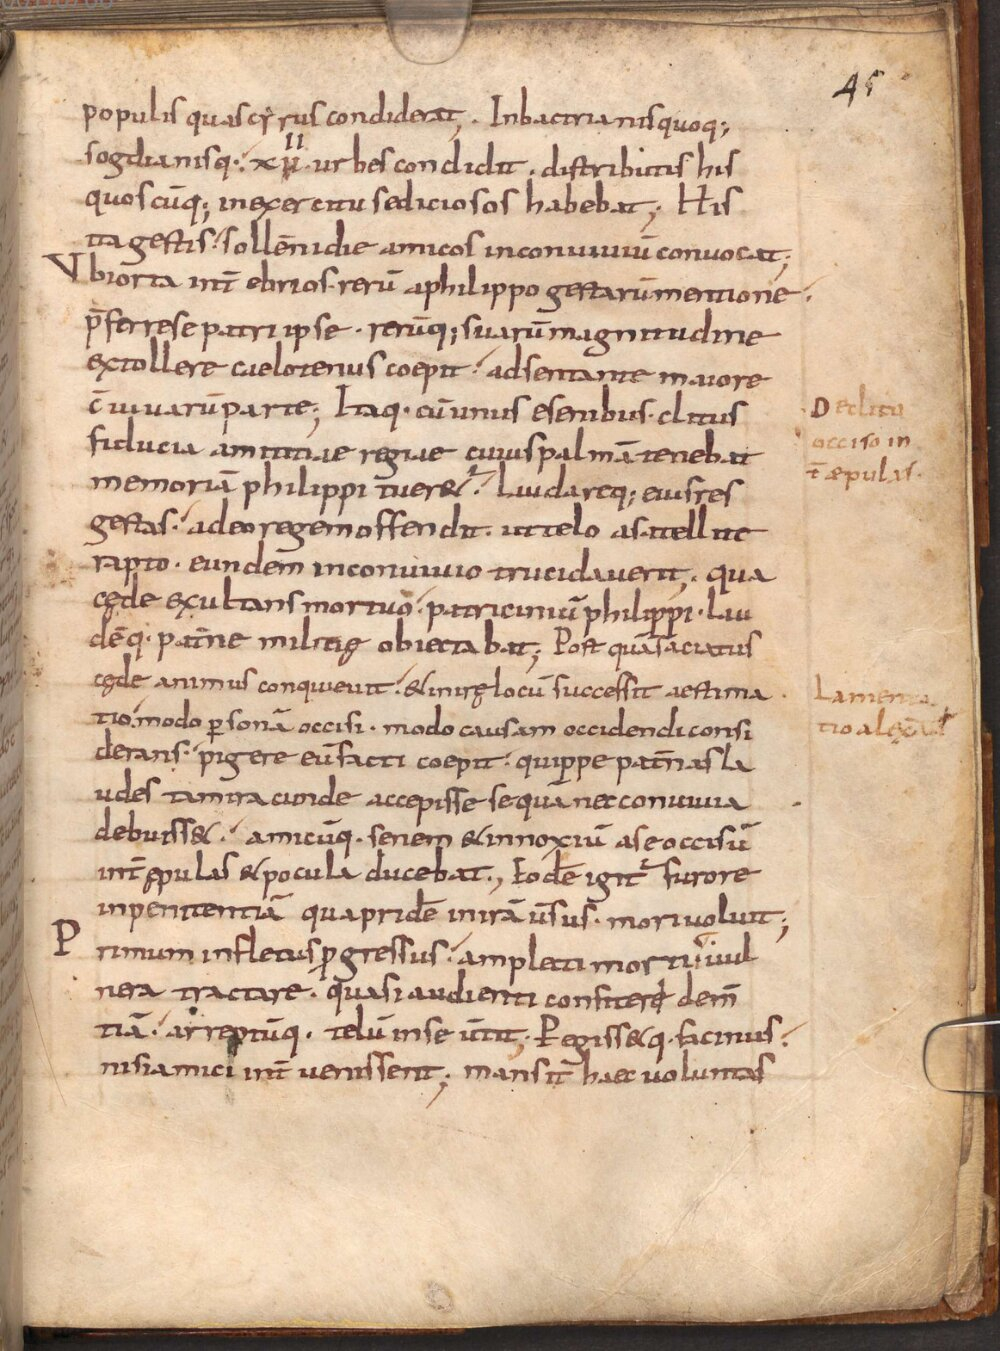 45
populis quas cyrus condiderat; In bactrianis quoq;
sogdianisq· xii urbes condidit · distributis his
quoscūq; in exercitu sediciosos habebat; His
ita gestis· sollēni die amicos in conuiuiū conuocat;
Vbi orta int̄ ebrios· rerū a philippo gestarū mentione·
p̄ferre se patri ipse · rerūq; suarū magnitudine
extollere caelo tenus coepit· adsentante maiore
c̄uiuarū parte; Itaq· cū unus e senibus· clitus
fiducia amicitiae regiae cuius palmā tenebat
memoriā philippi tueret&· laudaretq; eius res
gestas· adeo regem offendit· ut telo a satellite
rapto · eundem in conuiuio trucidauerit; qua
cęde exultans mortuo· patriciniū philippi· lau
dēq· pat̄ne militię obiectabat; Postquā saciatus
cęde animus conquieuit· & in irę locū successit aestima
tio· modo p̄sonā occisi· modo causam occidendi consi
derans· pigere eū facti coepit· quippe pat̄nas la
udes tam iracunde accepisse se quā nec conuiuia
debuiss&· amicūq· senem & innoxiū a se occisū
int̄ ępulas & pocula ducebat; Eodē igit̄ furore
in penitentiā quā pridē in irā ūsus· mori uoluit;
Primum in fletus p̄gressus· amplecti mortuū· uul
nera tractare· quasi audienti confiteri dem̄
tiā· arreptūq· telū in se ūtit; Pegiss&q· facinus·
nisi amici int̄uenissent; mansit haec uoluntas
De clito
occiso in
t̄ æpulas·
Lamenta
tio alexādri